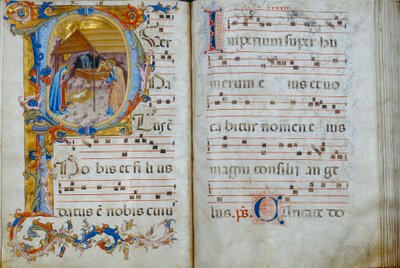 P uer
na
tus ē
No bis et fi li us
datus ē nobis cuiu
Imperium super hu
merum e ius et uo
ca bitur nomen e ius
magni consilii an ge
lus. ps. Cantate do